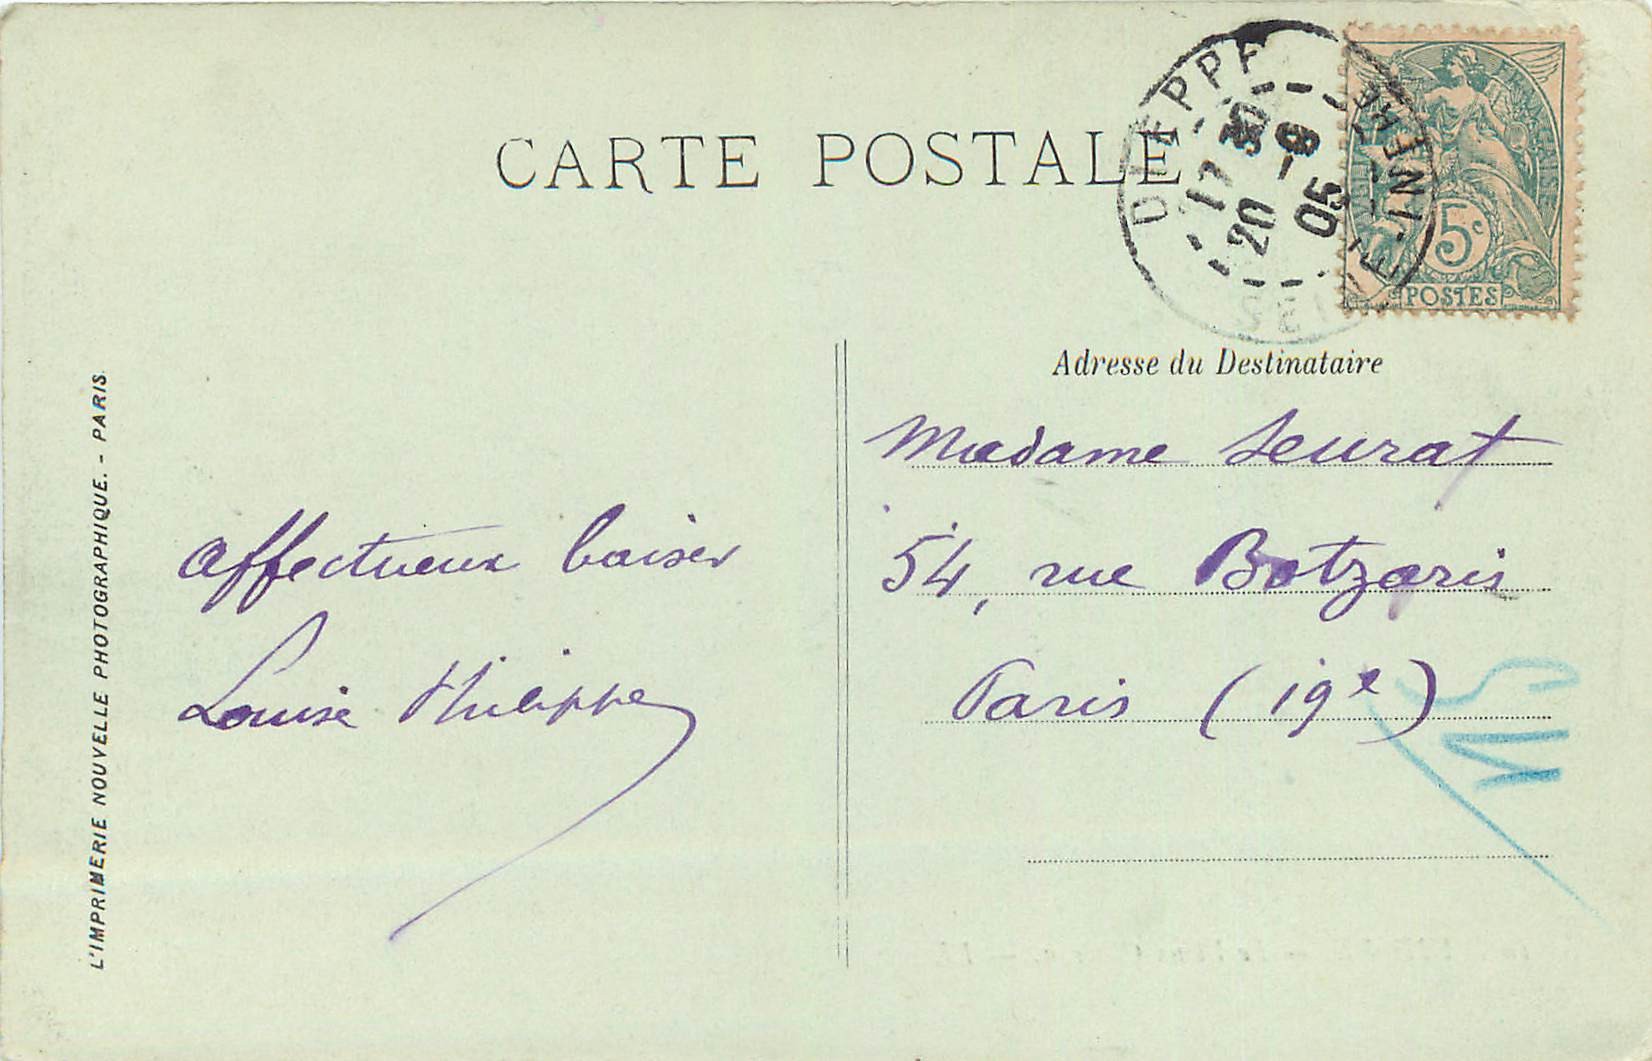 CARTE POSTALE
DIEPPE
SEINE-INFRE
17 30
20 -9
05
RÉPUBLIQUE FRANÇAISE
5c
POSTES
Adresse du Destinataire
Madame Seurat
54, rue Botzaris
Paris (19e)
Affectueux baiser
Louise Philippe
L'IMPRIMERIE NOUVELLE PHOTOGRAPHIQUE. - PARIS